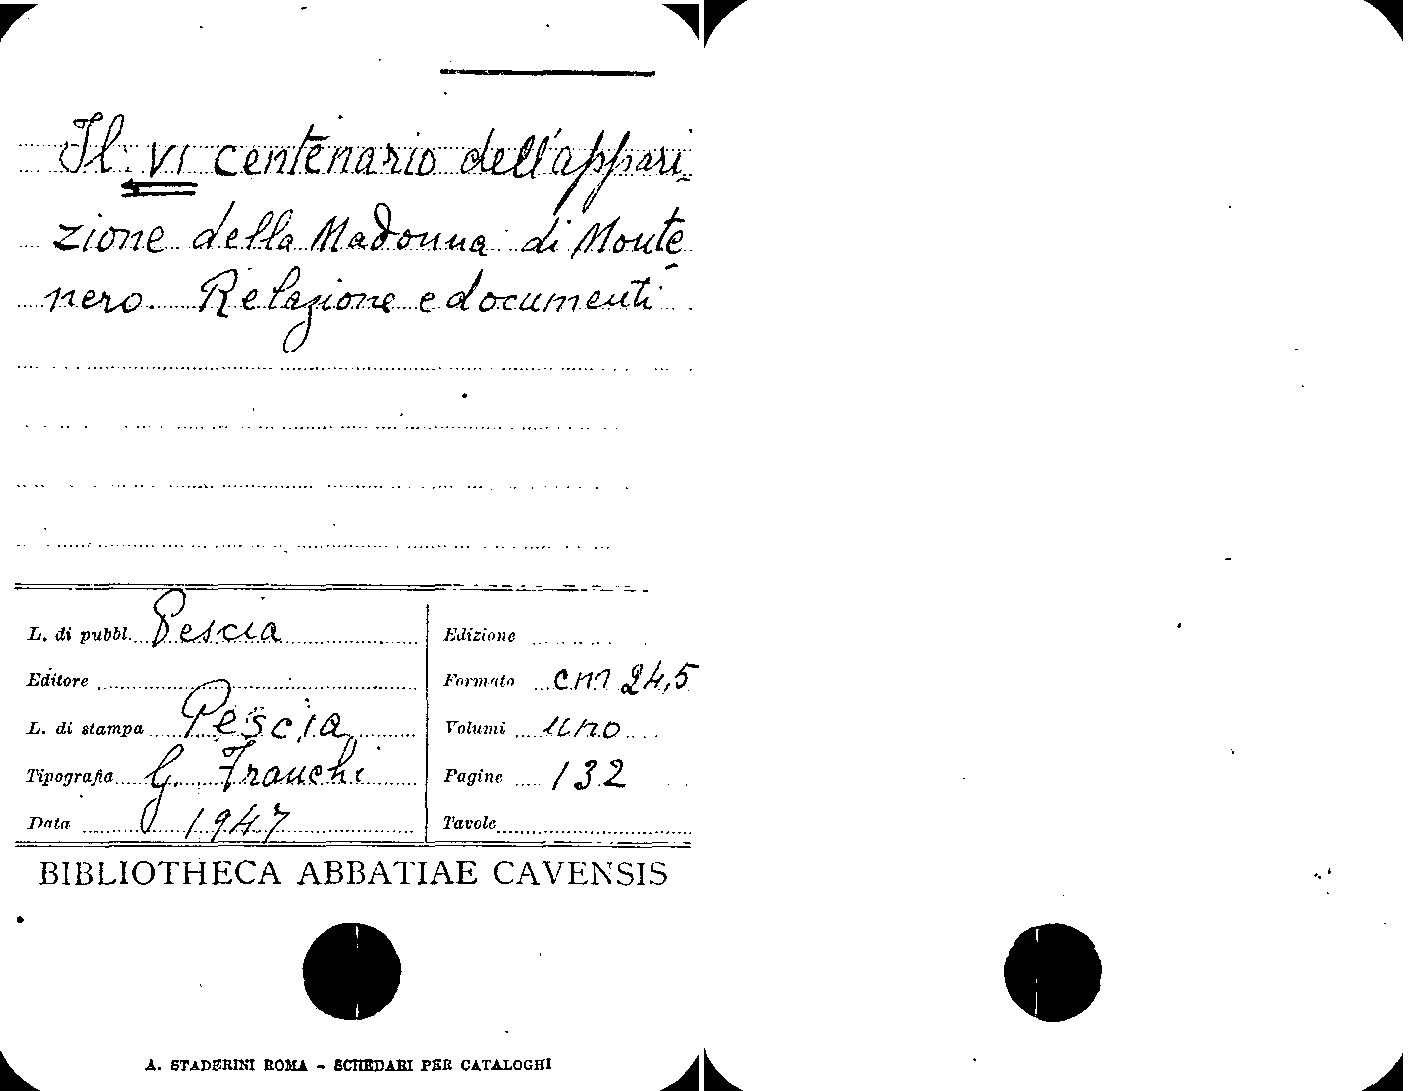 Il VI centenario dell'appari=
zione della Madonna di Monte
nero. Relazione e documenti
L. di pubbl. Pescia
Editore
L. di stampa Pescia
Tipografia G. Franchi
Data 1947
Edizione
Formato cm 24,5
Volumi uno
Pagine 132
Tavole
BIBLIOTHECA ABBATIAE CAVENSIS
A. STADERINI ROMA - SCHEDARI PER CATALOGHI